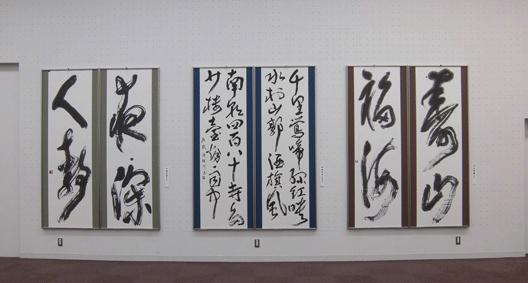 壽山
福海
千里鶯啼緑紅映
水村山郭酒旗風
南朝四百八十寺多
少楼臺烟雨中
夜深
人静